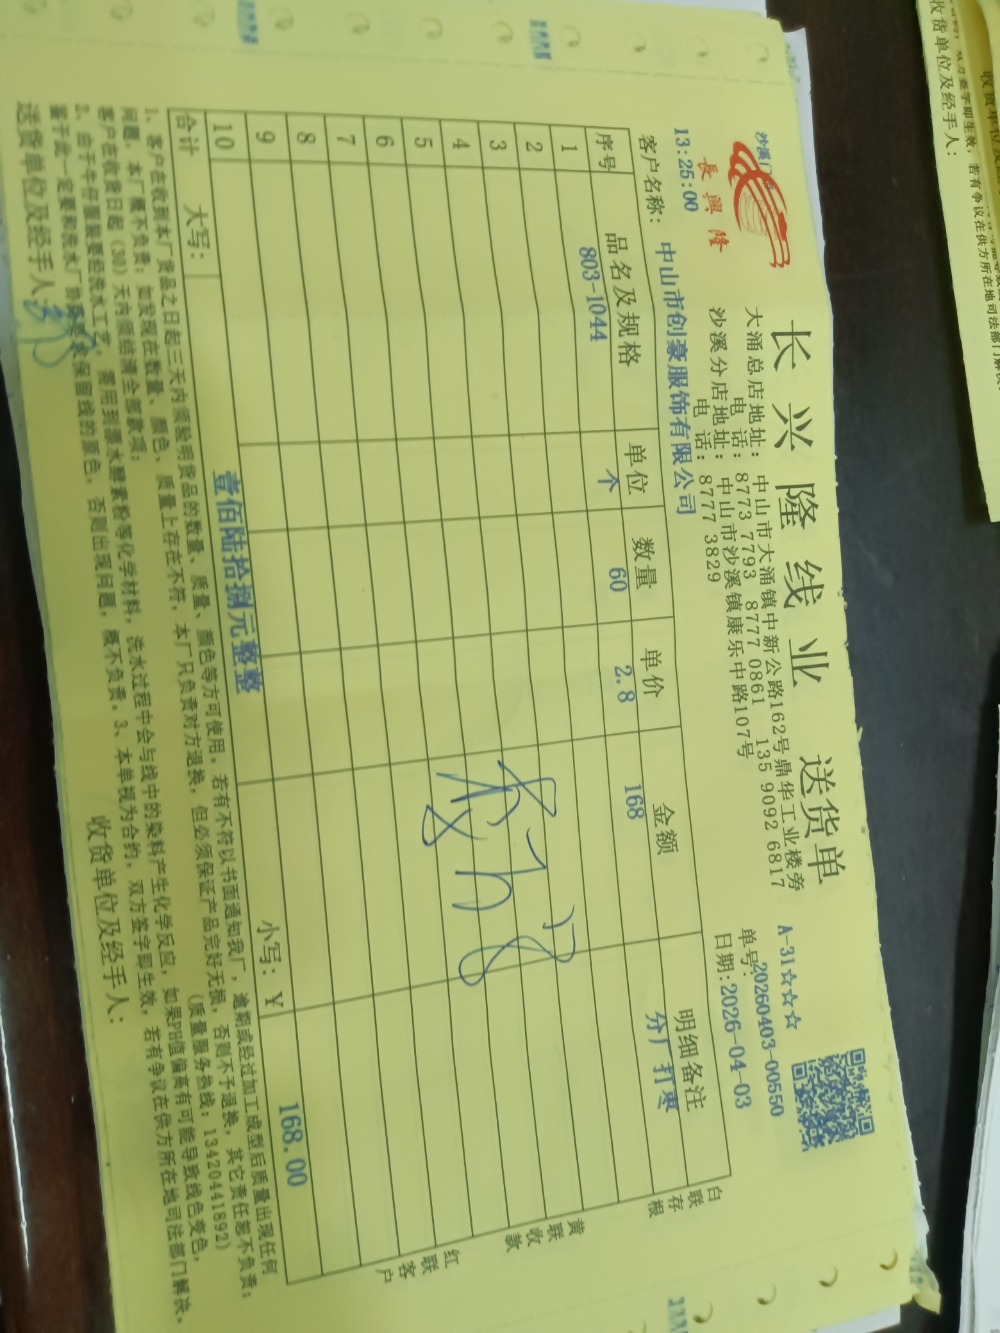 长兴隆线业 送货单
沙溪门
長興隆
大涌总店地址：中山市大涌镇中新公路162号鼎华工业楼旁
电 话：8773 7793 8777 0861 135 9092 6817
沙溪分店地址：中山市沙溪镇康乐中路107号
电 话：8777 3829
A-31☆☆☆
单号：20260403-00550
日期：2026-04-03
13:25:00
客户名称：中山市创豪服饰有限公司
序号 品名及规格 单位 数量 单价 金额 明细备注
1 803-1044 个 60 2.8 168 分厂打枣
2
3
4
5
6
7
8
9
10
合计 大写：壹佰陆拾捌元整整 小写：￥ 168.00
白联存根
黄联收款
红联客户
1、客户在收到本厂货品之日起三天内须验明货品的数量、质量、颜色等方可使用。若有不符以书面通知我厂，逾期或经过加工成型后质量出现任何
问题，本厂概不负责；如发现在数量、颜色、质量上存在不符，本厂只负责对方退换，但必须保证产品完好无损，否则不予退换，其它责任都不负责；
客户在收货日起（30）天内须结清全部款项； （质量服务热线：13420441892）
2、由于牛仔服装要经洗水工艺，需用到漂水酵素粉等化学材料，洗水过程中会与线中的染料产生化学反应，如果PH值偏高有可能导致线色变色，
鉴于此，一定要和洗水厂 保留线的原色，否则出现问题，概不负责。3、本单视为合约，双方签字即生效，若有争议在供方所在地司法部门解决。
送货单位及经手人： 收货单位及经手人：
收货单位及经手人：
双方签字即生效，若有争议在供方所在地司法部门解决
收货单位及经手人：